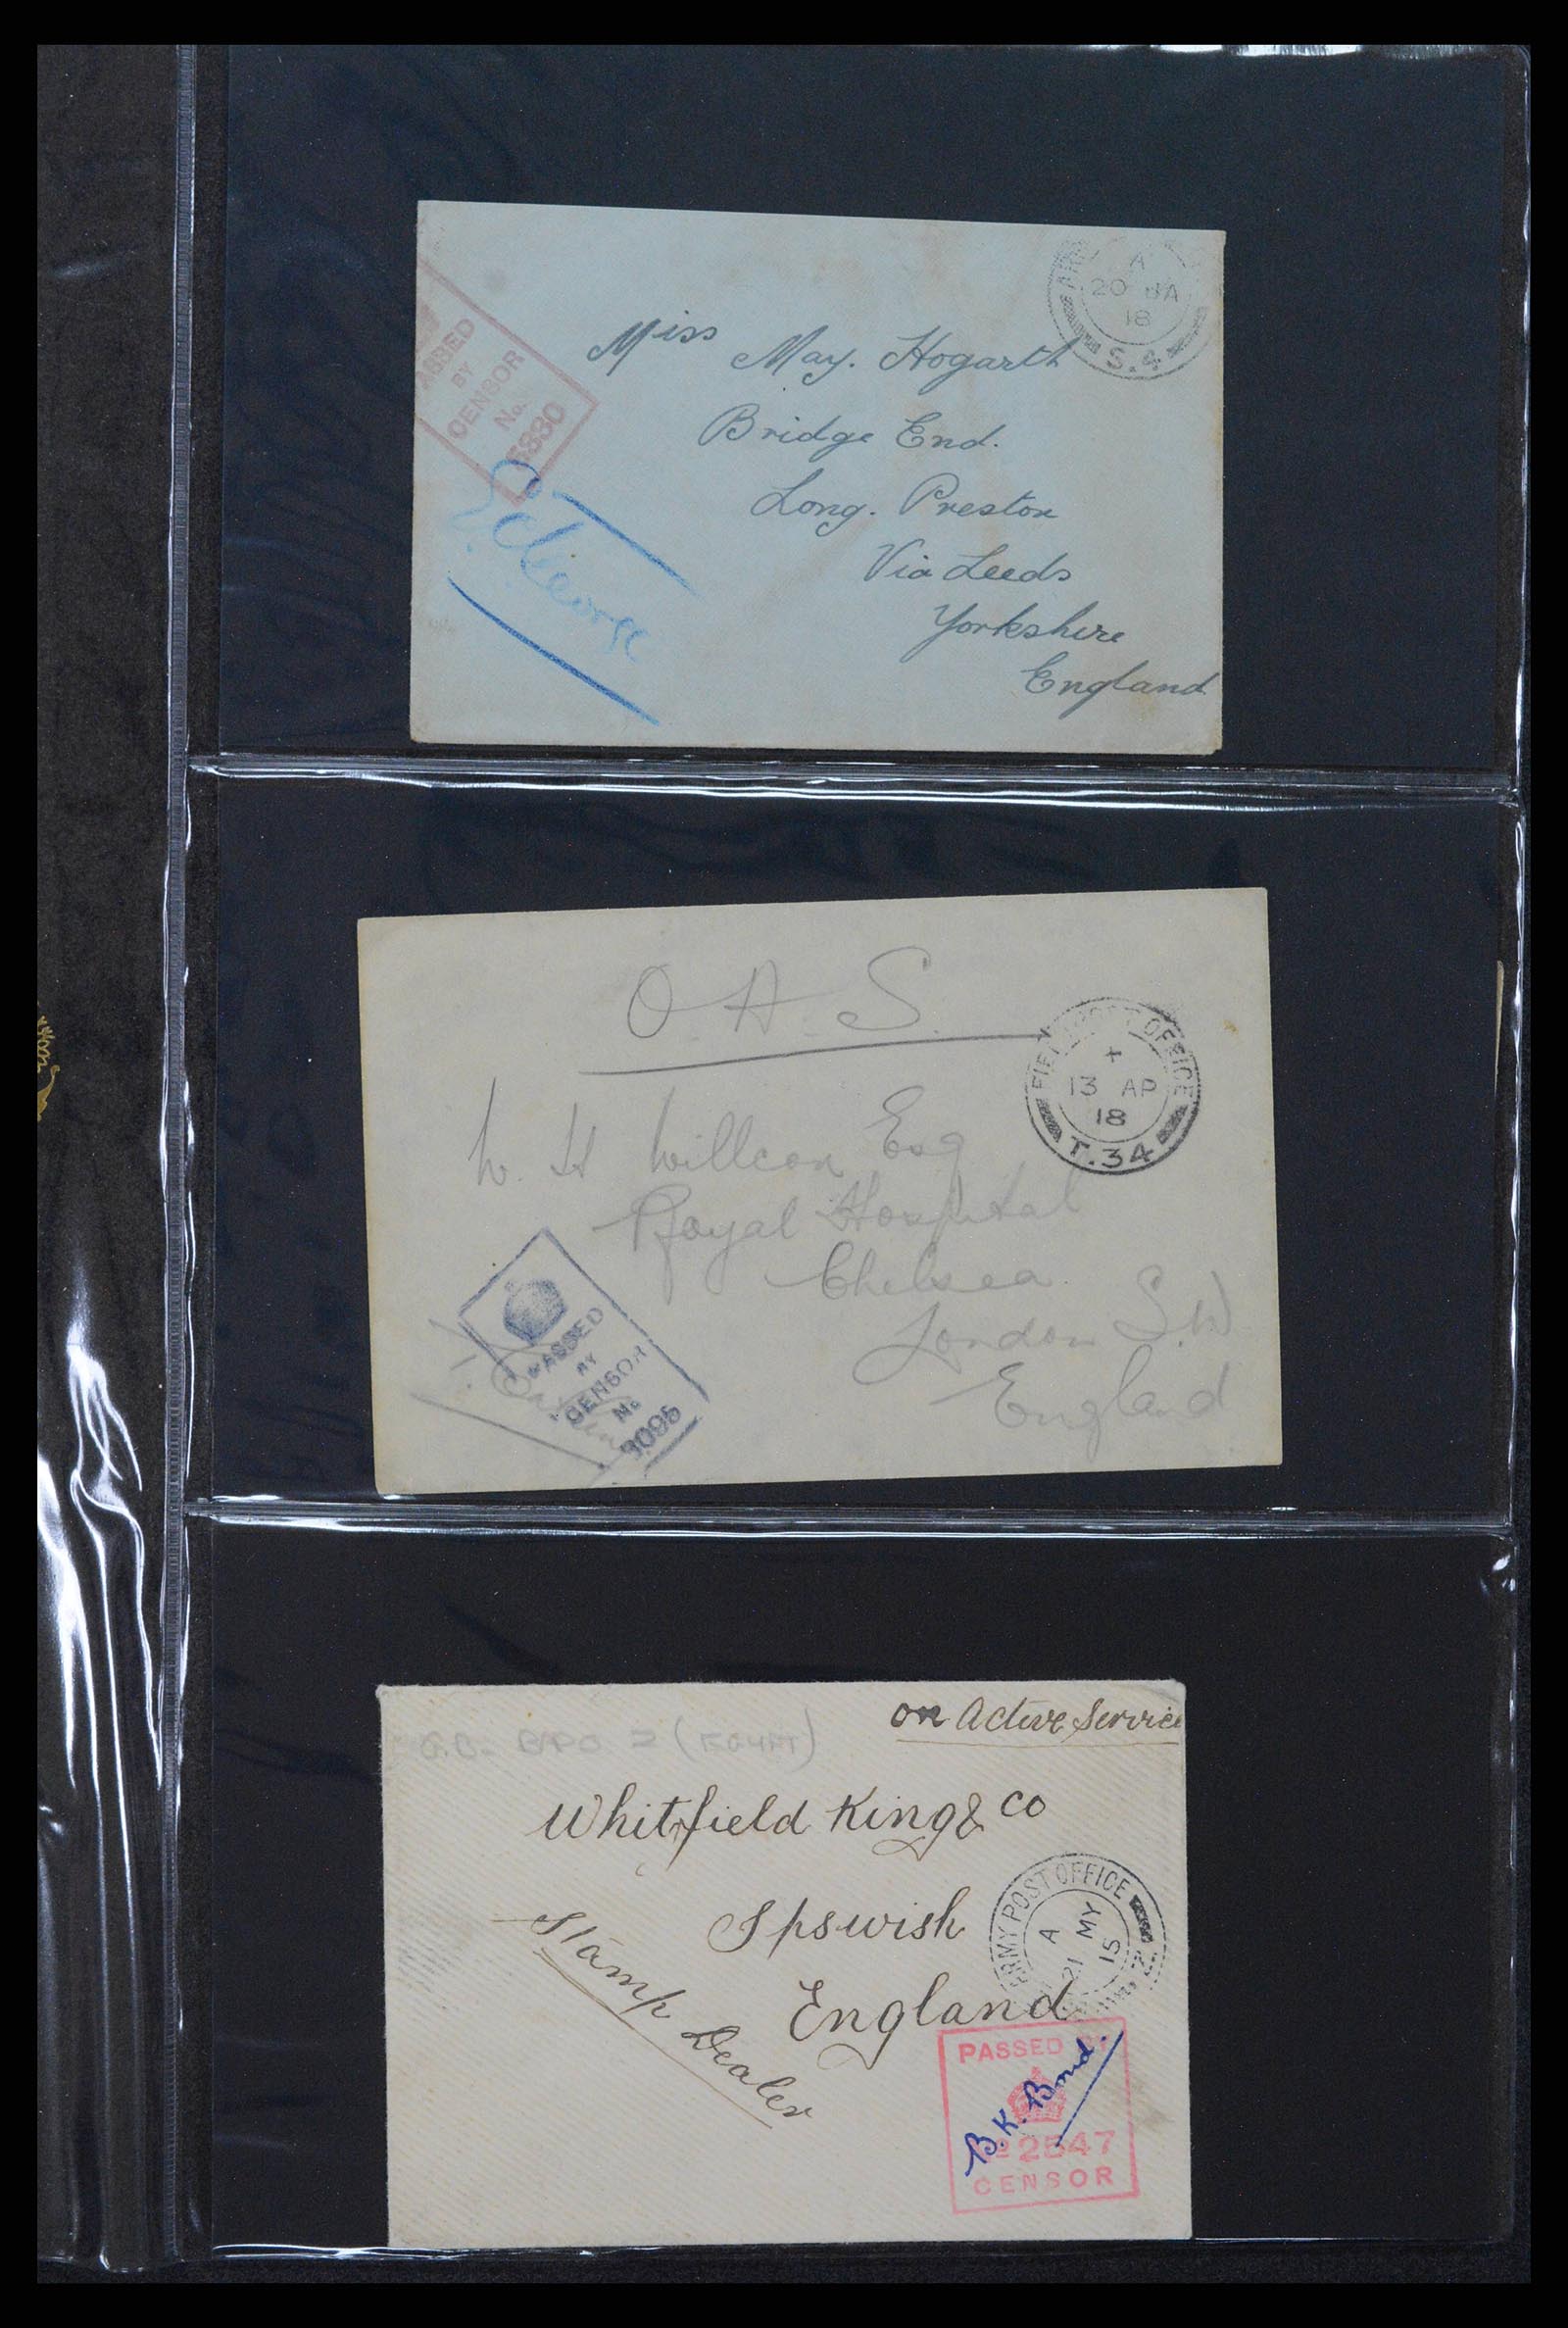 A
20 JA
18
S.4
PASSED
BY
CENSOR
No.
5330
Miss May. Hogarth
Bridge End.
Long. Preston
Via Leeds
Yorkshire
England
George
O A S.
FIELD POST OFFICE
+
13 AP
18
T.34
W. H Willcox Esq
Royal Hospital
Chelsea
London S.W
England
PASSED
BY
CENSOR
No
3095
on Active Service
G.B. BAPO Z (EGYPT)
Whitfield King & Co
Ipswish
England
Stamp Dealer
ARMY POST OFFICE
A
21 MY
15
Z
PASSED BY
No 2547
CENSOR
B.K. Bond.